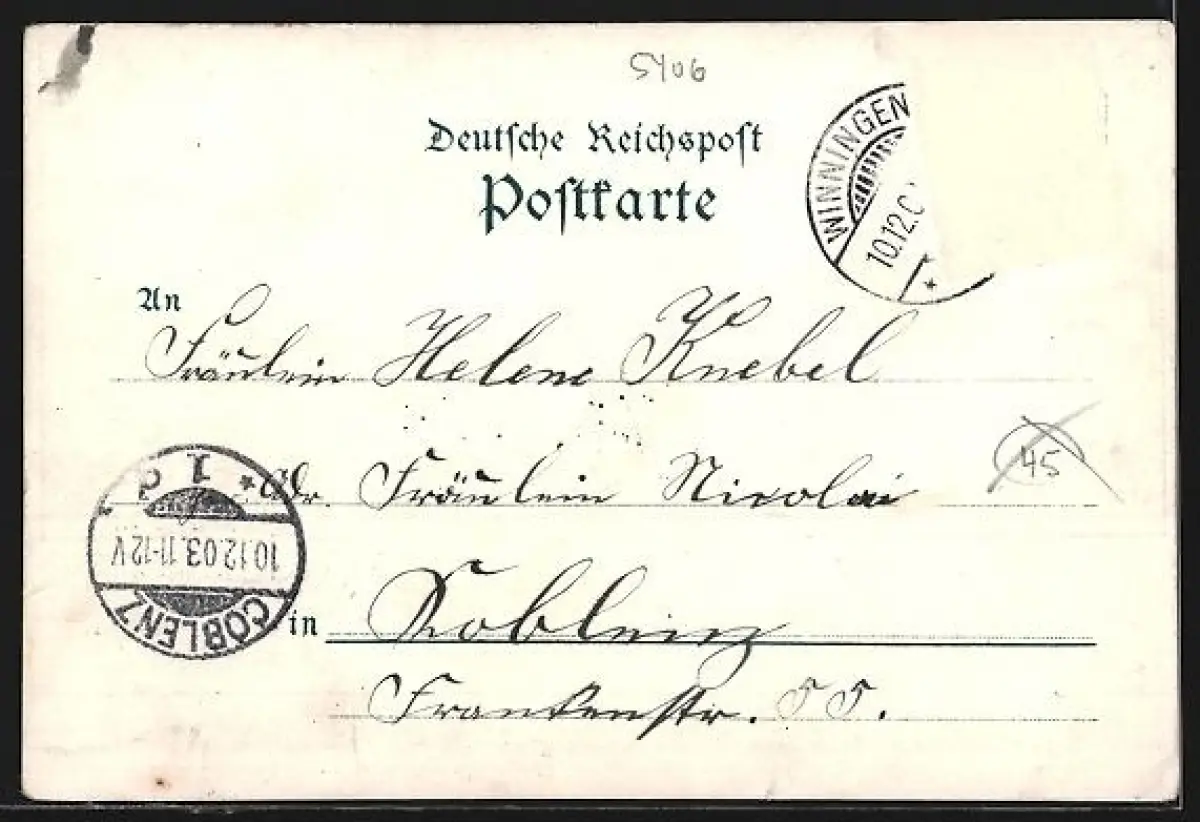 5406
Deutsche Reichspost
Postkarte
WINNINGEN
10.12.0
*
An
Fräulein Helene Knebel
45
Adr. Fräulein Nicolai
* 1 d
10.12.03.11-12V
COBLENZ
in Koblenz
Frankenstr. 55.